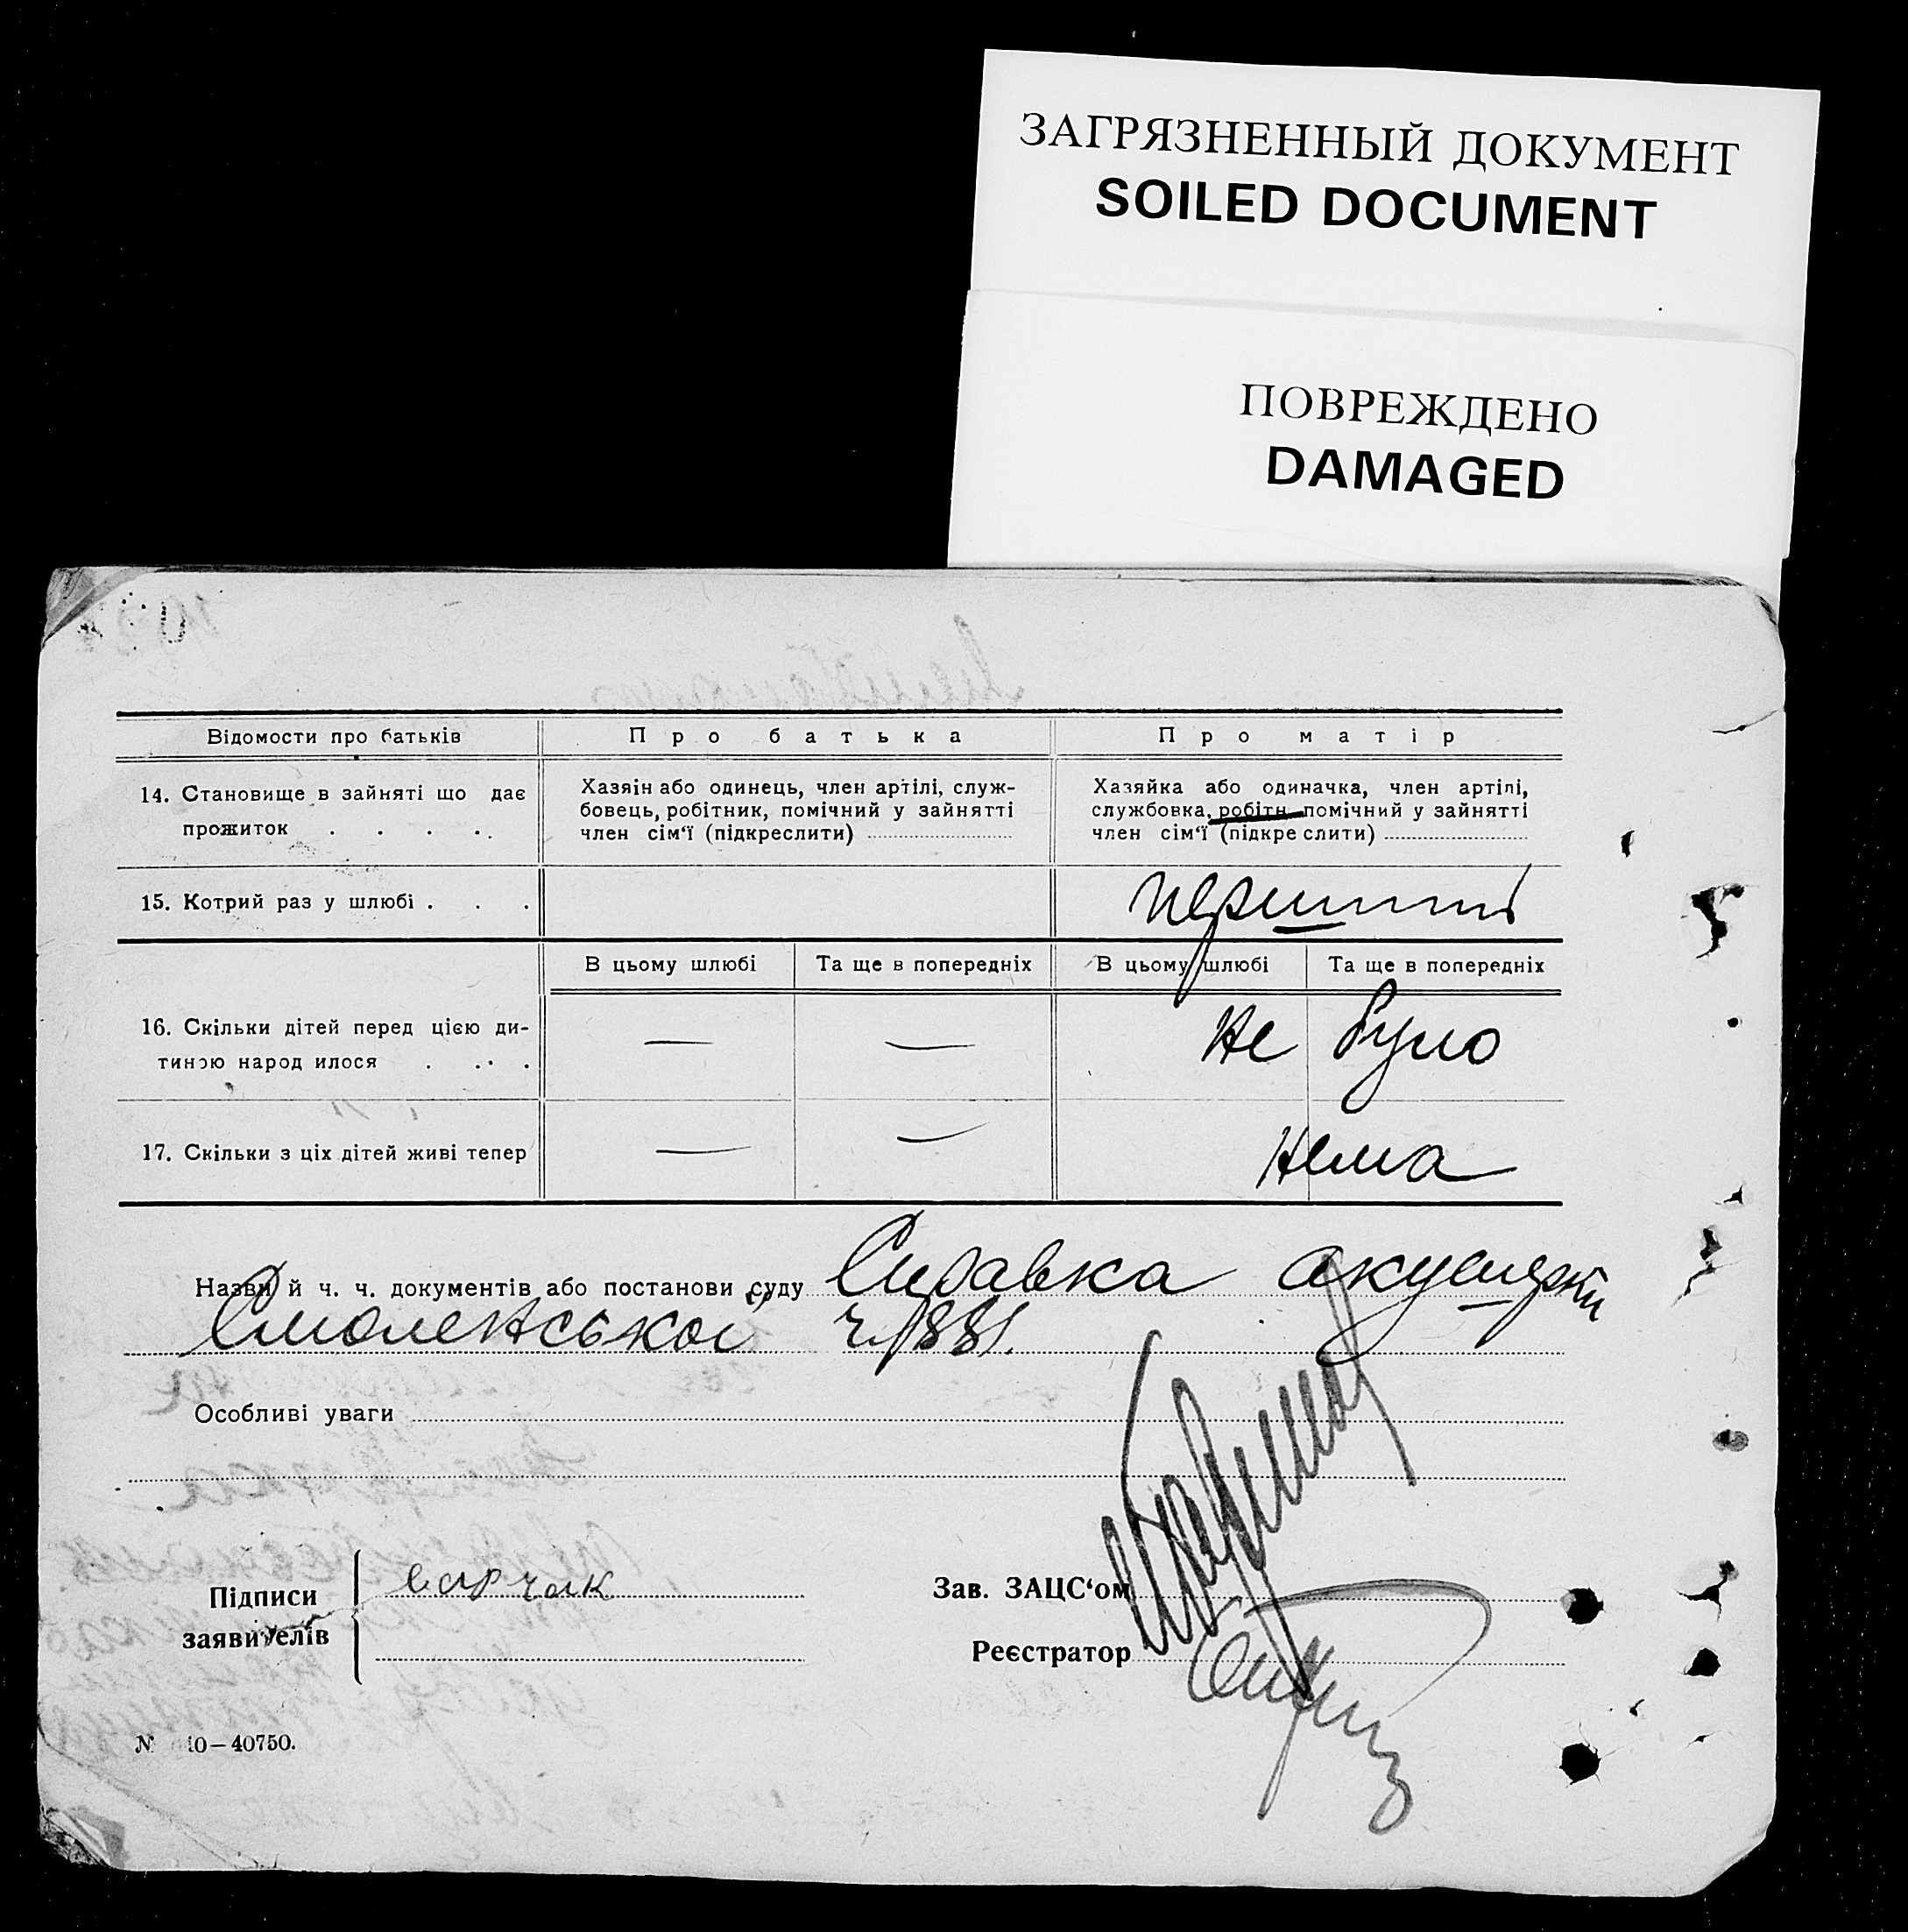 ЗАГРЯЗНЕННЫЙ ДОКУМЕНТ
SOILED DOCUMENT
ПОВРЕЖДЕНО
DAMAGED
Відомости про батьків
Про батька
Про матір
14. Становище в зайняті що дає
прожиток . . . .
Хазяін або одинець, член артілі, служ-
бовець, робітник, помічний у зайнятті
член сім‘ї (підкреслити)
Хазяйка або одиначка, член артілі,
службовка, робітн. помічний у зайнятті
член сім‘ї (підкре слити)
15. Котрий раз у шлюбі . . .
перший
В цьому шлюбі
Та ще в попередніх
В цьому шлюбі
Та ще в попередніх
16. Скільки дітей перед цією ди-
тиною народ илося . . .
— —
Не було
17. Скільки з ціх дітей живі тепер
— —
Нема
Назви й ч. ч. документів або постанови суду Справка акушерки
Смоленської ч. 1881.
Особливі уваги
Підписи
заявителів
Зав. ЗАЦС‘ом
Реєстратор
№ 10—40750.